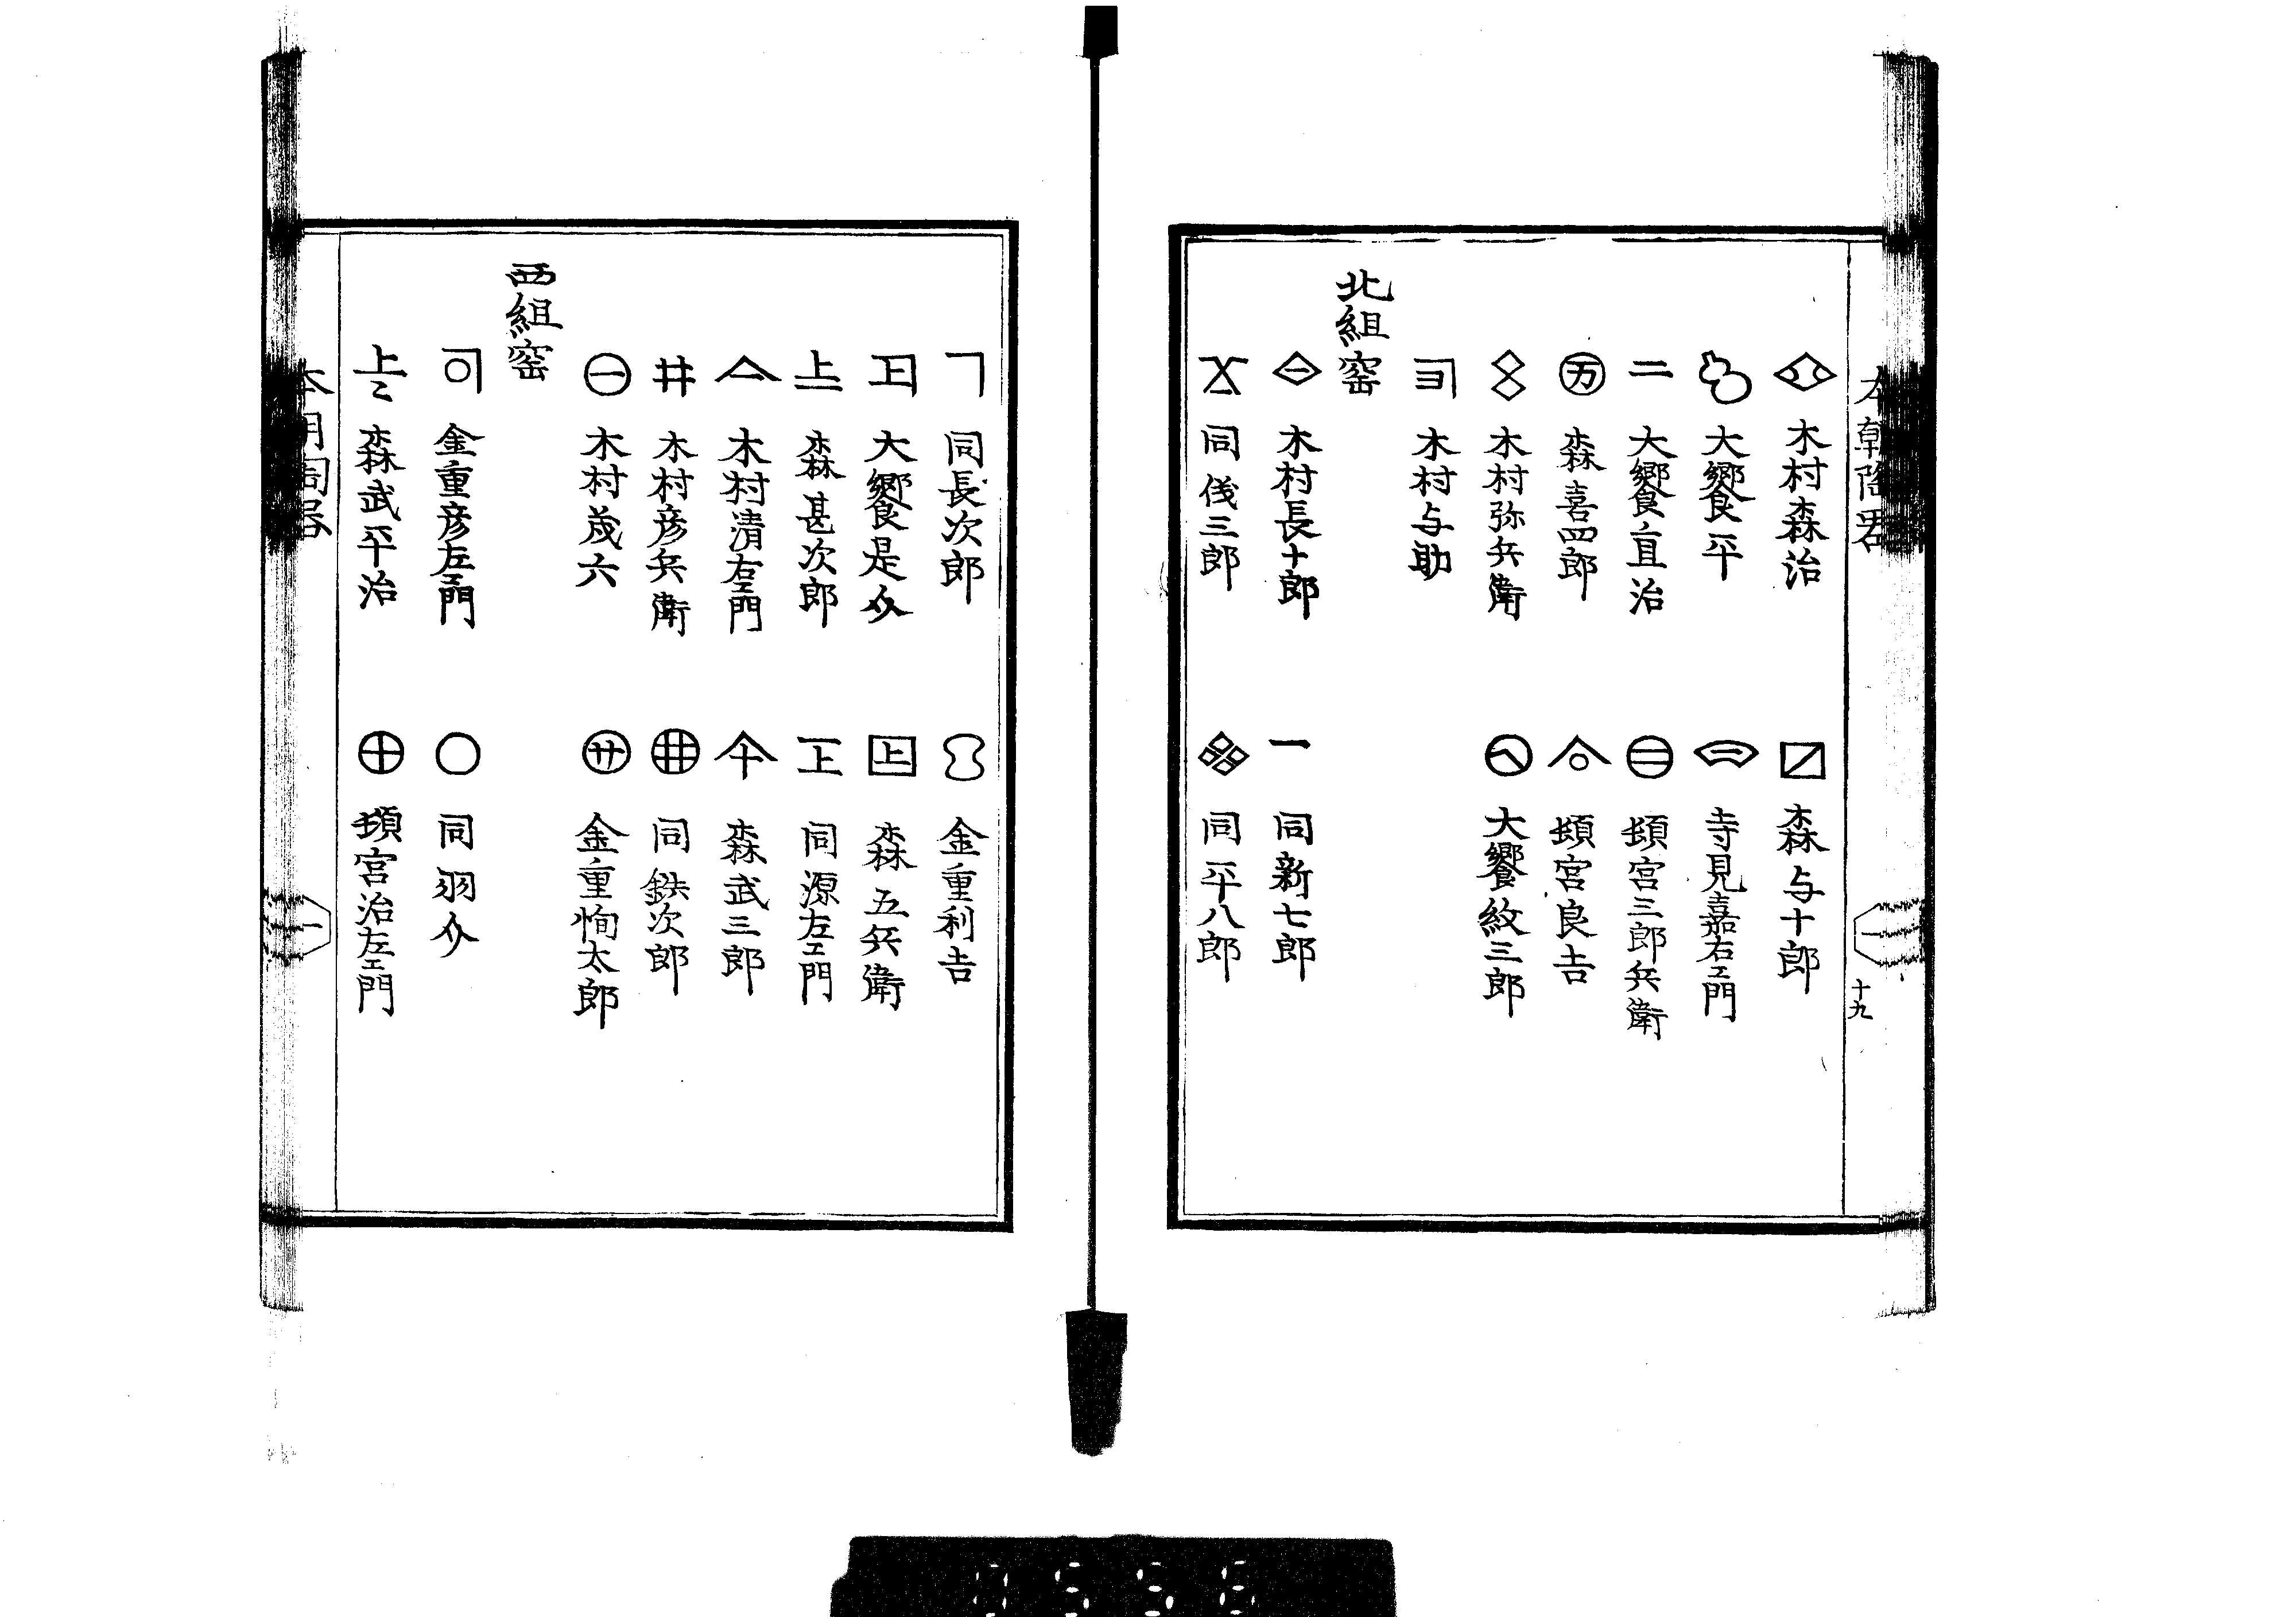 木村森治
森与十郎
大饗平
寺見嘉右エ門
二 大饗直治
頓宮三郎兵衛
万 森喜四郎
頓宮良吉
木村弥兵衛
大饗紋三郎
木村与助
北組窑
木村長十郎
一 同新七郎
同 三郎
同平八郎
十九
同長次郎
金重利吉
大饗是介
上 森五兵衛
森甚次郎
同源左エ門
木村清右エ門
森武三郎
井 木村彦兵衛
同鉄次郎
一 木村歳六
金重恂太郎
西組窑
金重彦左エ門
同羽介
上 森武平治
頓宮治左エ門